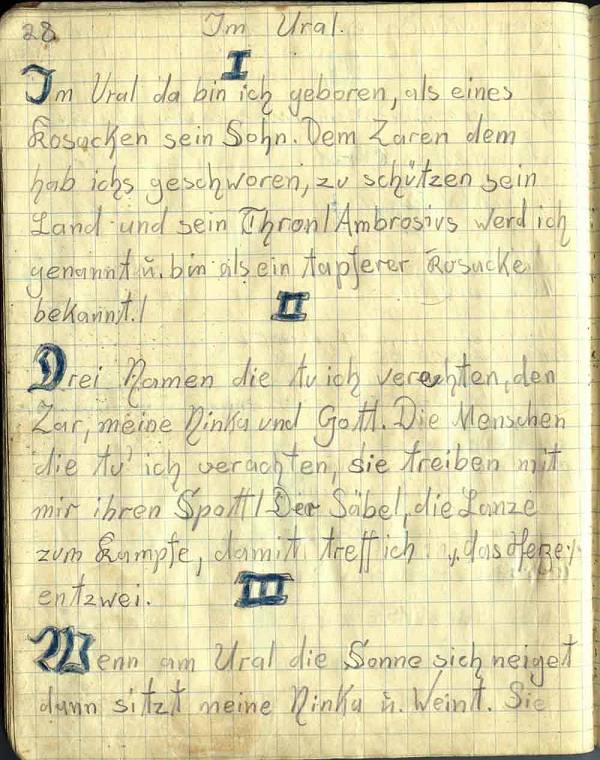 28 Im Ural.
I
Im Ural da bin ich geboren, als eines
Kosacken sein Sohn. Dem Zaren dem
hab ichs geschworen, zu schützen sein
Land und sein Thron/Ambrosius werd ich
genannt ŭ. bin als ein tapferer Kosacke
bekannt./
II
Drei Namen die tu ich verachten, den
Zar, meine Ninka und Gott. Die Menschen
die tu' ich verachten, sie treiben mit
mir ihren Spott/Der Säbel, die Lanze
zum Kampfe, damit treff ich das Herze
entzwei.
III
Wenn am Ural die Sonne sich neiget
dann sitzt meine Ninka ŭ. Weint. Sie